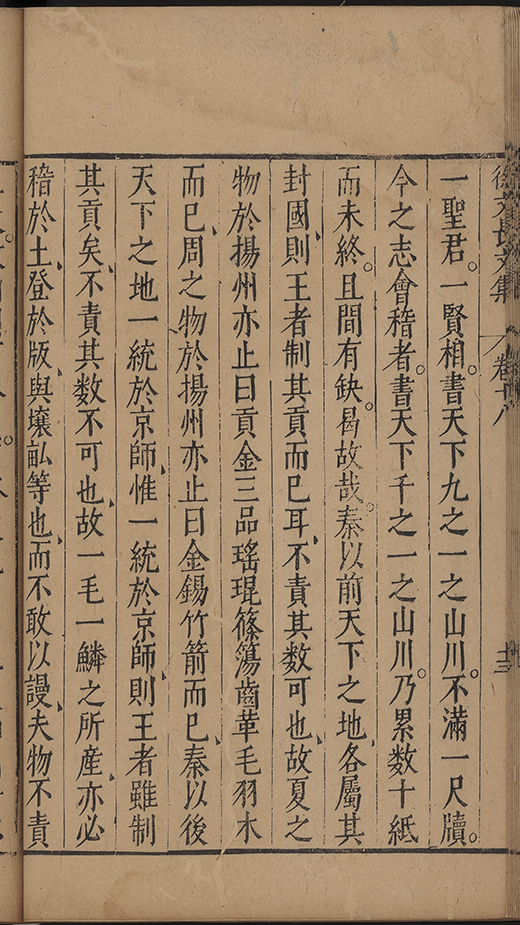 徐文長文集 卷十八 十三
一聖君。一賢相。書天下九之一之山川。不滿一尺牘。
今之志會稽者。書天下千之一之山川。乃累數十紙
而未終。且間有缺。曷故哉。秦以前天下之地、各屬其
封國、則王者制其貢而已耳、不責其數可也、故夏之
物於揚州亦止曰貢金三品瑤琨篠簜齒革毛羽木
而已、周之物於揚州亦止曰金錫竹箭而已、秦以後
天下之地一統於京師、惟一統於京師、則王者雖制
其貢矣、不責其數不可也、故一毛一鱗之所產、亦必
稽於土、登於版、與壤畆等也、而不敢以謾、夫物不責